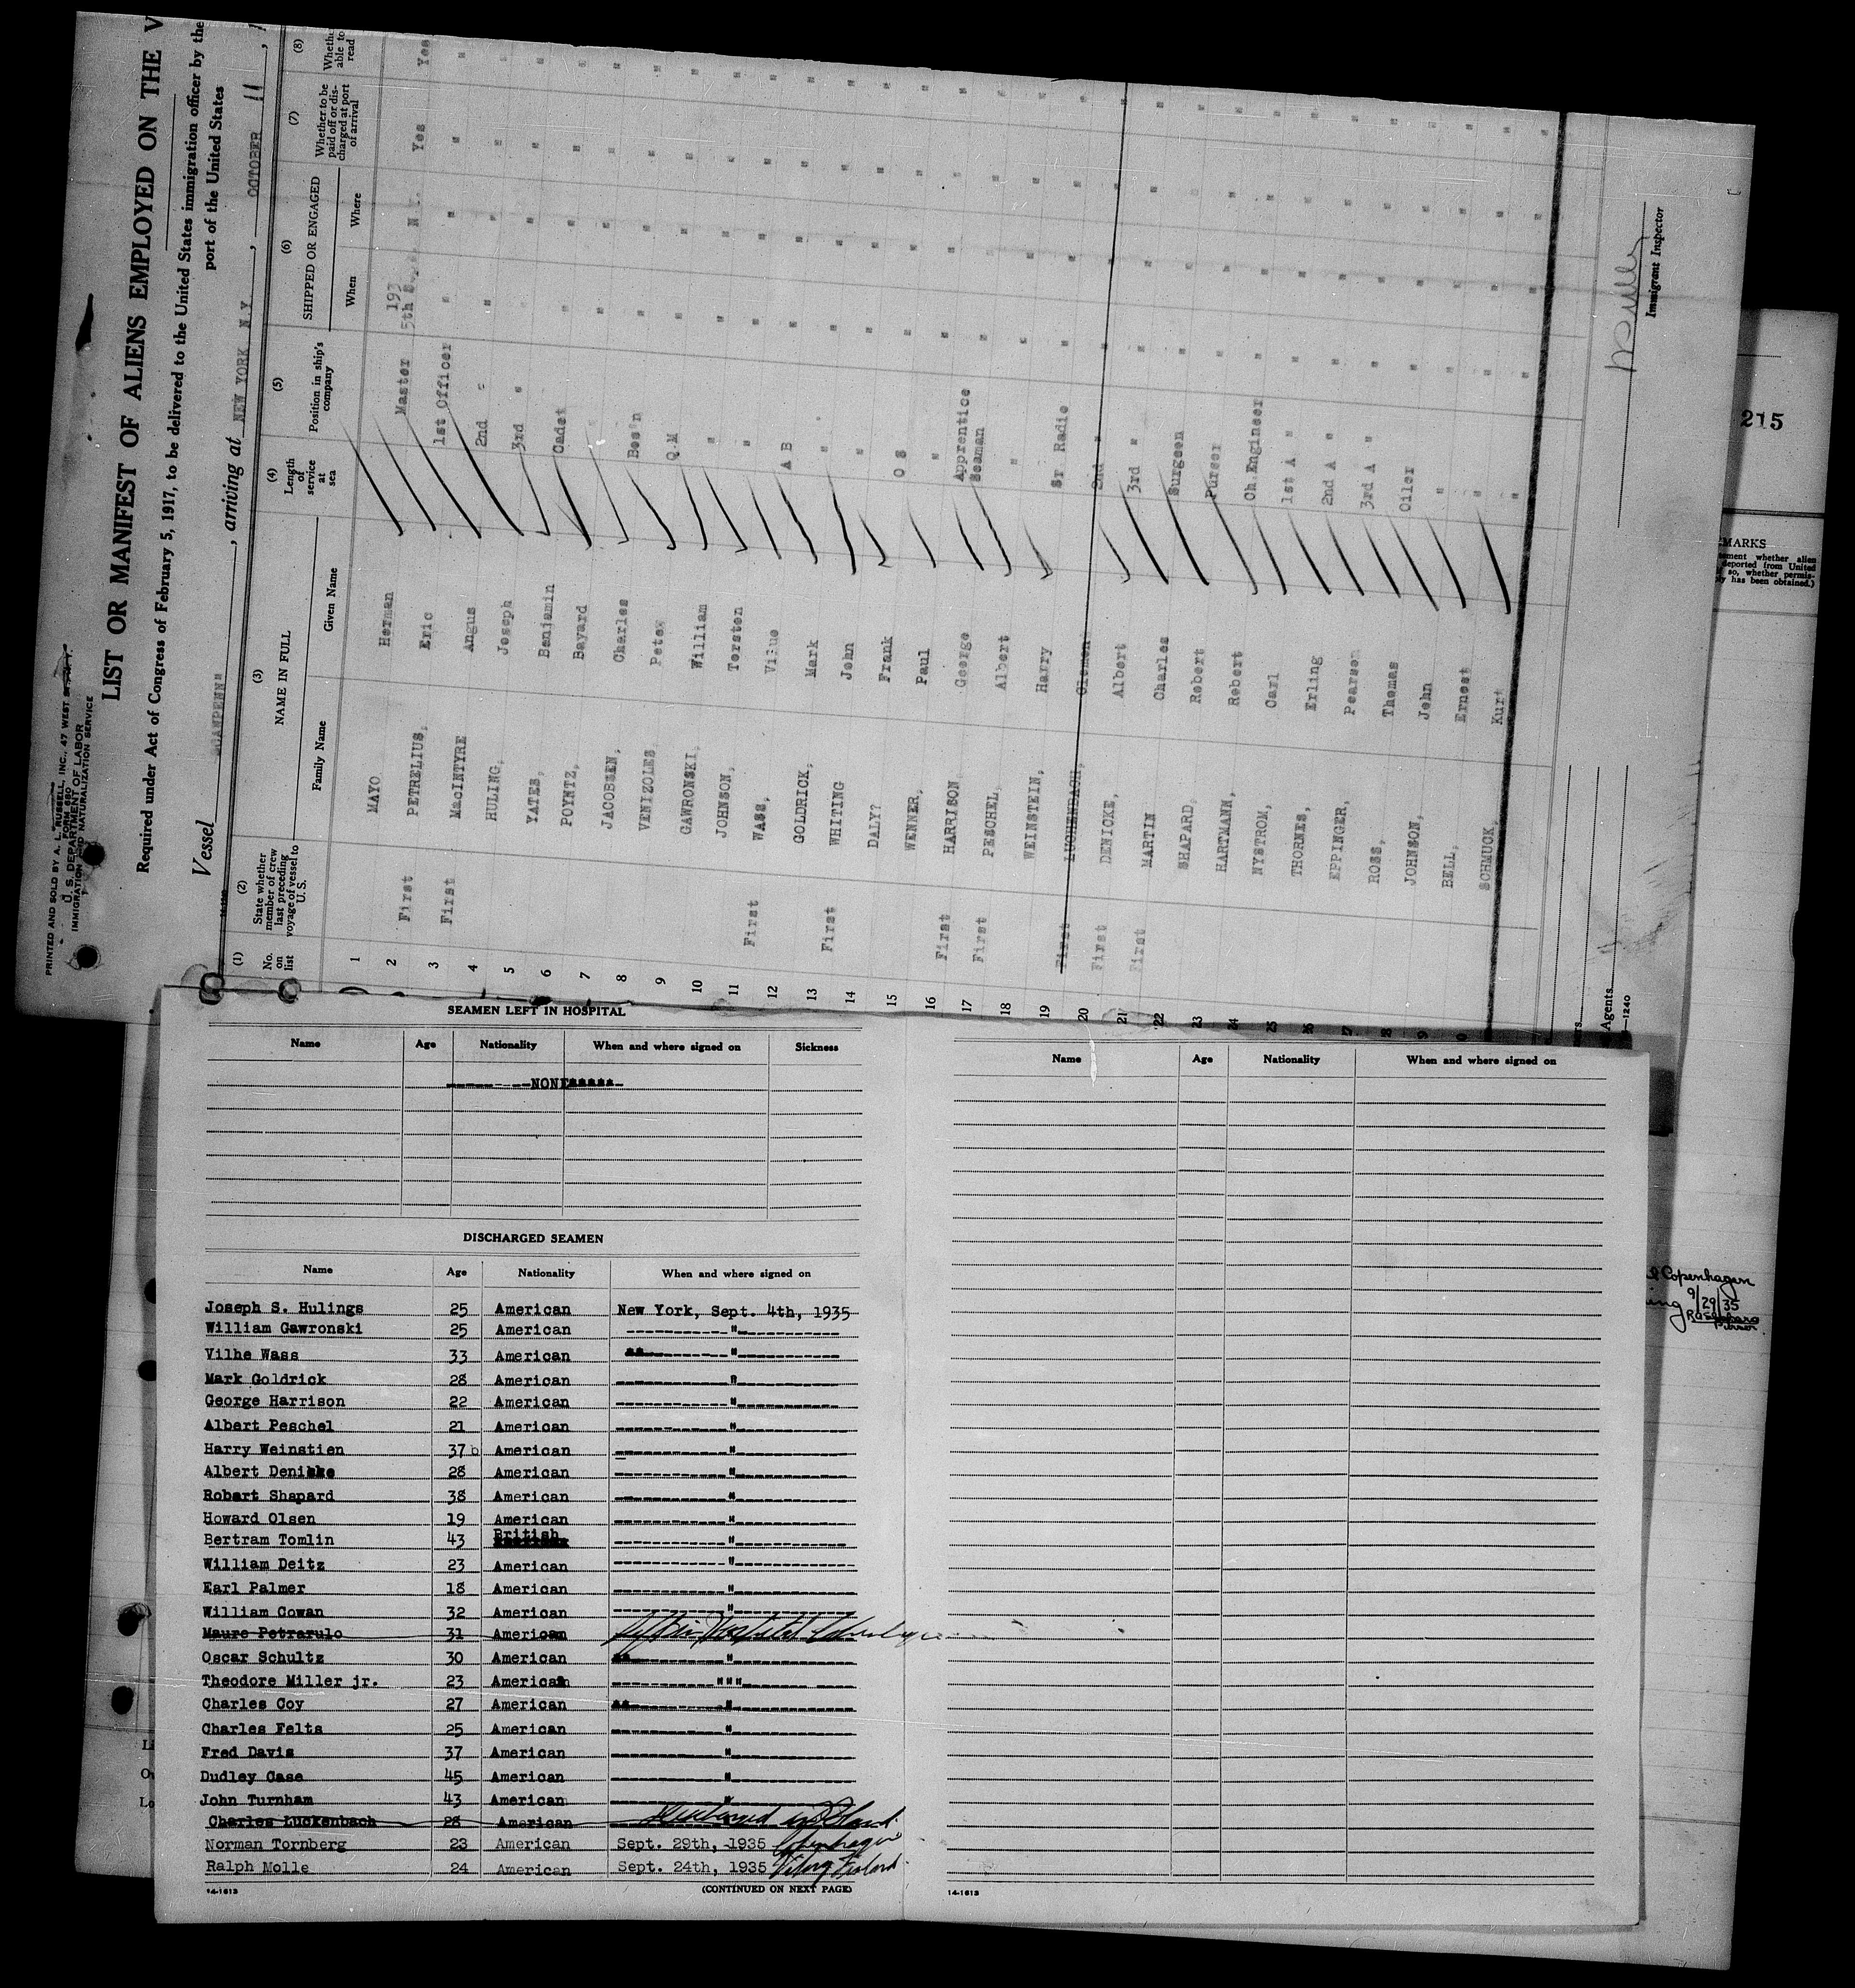 PRINTED AND SOLD BY A. L. RUSSELL, INC., 47 WEST
FORM 680
U. S. DEPARTMENT OF LABOR
IMMIGRATION AND NATURALIZATION SERVICE
LIST OR MANIFEST OF ALIENS EMPLOYED ON THE V
Required under Act of Congress of February 5, 1917, to be delivered to the United States immigration officer by the
port of the United States
Vessel SCANPENN" , arriving at NEW YORK N.Y , OCTOBER 11 ,
(1) (2) (3) (4) (5) (6) (7) (8)
No. on list
State whether member of crew last preceding voyage of vessel to U. S.
NAME IN FULL
Family Name Given Name
Length of service at sea
Position in ship's company
SHIPPED OR ENGAGED
When Where
Whether to be paid off or discharged at port of arrival
Whether able to read
193
1 MAYO Herman Master 5th Yes Yes
2 First PETRELIUS, Eric 1st Officer " " " "
3 First MacINTYRE Angus 2nd " " " " "
4 HULING, Joseph 3rd " " " "
5 YATES, Benjamin Cadet " " " "
6 POYNTZ, Bayard " " " "
7 JACOBSEN, Charles Bos'n " " " "
8 VENIZOLES Peter Q.M " " " "
9 GAWRONSKI, William " " " " "
10 JOHNSON, Torsten " " " " "
11 First WASS, A B " " " "
12 GOLDRICK, Mark " " " " "
13 First WHITING John " " " " "
14 DALY? Frank O S " " " "
15 WENNER, Paul " " " " "
16 First HARRISON George Apprentice Seaman " " " "
17 First PESCHEL, Albert " " " " "
18 WEINSTEIN, Harry Sr Radio " " " "
19 First LUCHENBACH, Clemen 2nd " " " " "
20 First DENICKE, Albert 3rd " " " " "
21 First MARTIN Charles Surgeon " " " "
22 SHAPARD, Robert Purser " " " "
23 HARTMANN, Robert Ch.Engineer " " " "
24 NYSTROM, Carl 1st A " " " " "
25 THORNES, Erling 2nd A " " " " "
26 EPPINGER, Pearson 3rd A " " " " "
27 ROSS, Thomas Oiler " " " "
28 JOHNSON, John " " " " "
9 BELL, Ernest " " " " "
0 SCHMUCK, Kurt " " " " "
Agents
—1240
Immigrant Inspector
215
MARKS
ement whether alien
deported from United
so, whether permis-
ly has been obtained.)
Copenhagen
9/29/35
Purser
SEAMEN LEFT IN HOSPITAL
Name Age Nationality When and where signed on Sickness
NONE
Name Age Nationality When and where signed on
DISCHARGED SEAMEN
Name Age Nationality When and where signed on
Joseph S. Hulings 25 American New York, Sept. 4th, 1935
William Gawronski 25 American "
Vilhe Wass 33 American "
Mark Goldrick 28 American "
George Harrison 22 American "
Albert Peschel 21 American "
Harry Weinstien 37 American "
Albert Denicke 28 American "
Robart Shapard 38 American "
Howard Olsen 19 American "
Bertram Tomlin 43 British "
William Deitz 23 American "
Earl Palmer 18 American "
William Cowan 32 American "
Mauro Petrarulo 31 American
Oscar Schultz 30 American "
Theodore Miller jr. 23 American """
Charles Coy 27 American "
Charles Felts 25 American "
Fred Davis 37 American "
Dudley Case 45 American "
John Turnham 43 American "
Charles Luckenbach 28 American
Norman Tornberg 23 American Sept. 29th, 1935 Copenhagen
Ralph Molle 24 American Sept. 24th, 1935
14-1613 (CONTINUED ON NEXT PAGE) 14-1613